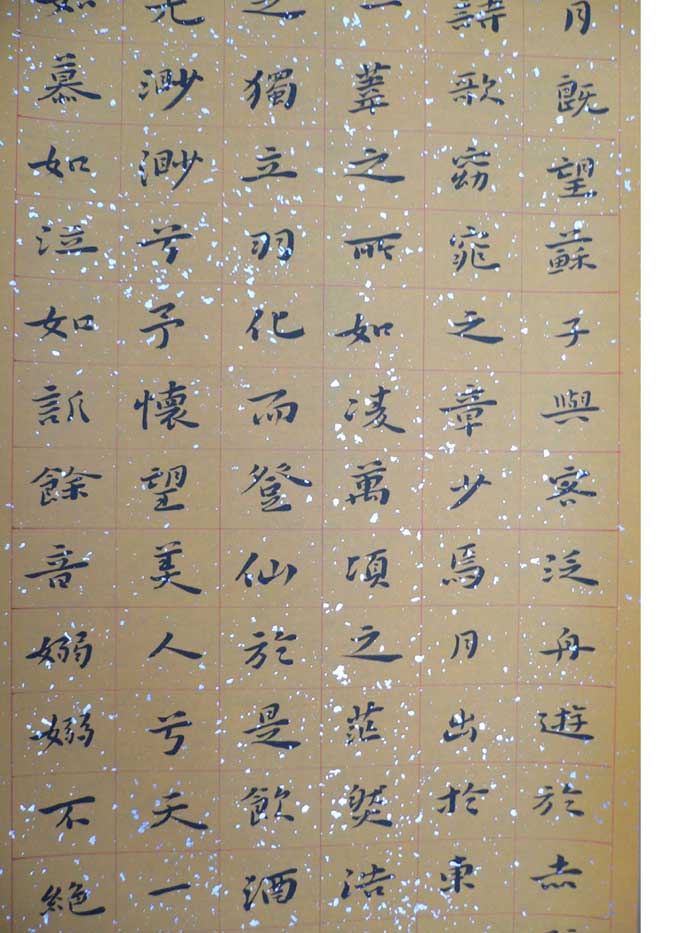 月既望蘇子與客泛舟遊於赤
詩歌窈窕之章少焉月出於東
一葦之所如凌萬頃之茫然浩
之獨立羽化而登仙於是飲酒
光渺渺兮予懷望美人兮天一
如慕如泣如訴餘音嫋嫋不絕